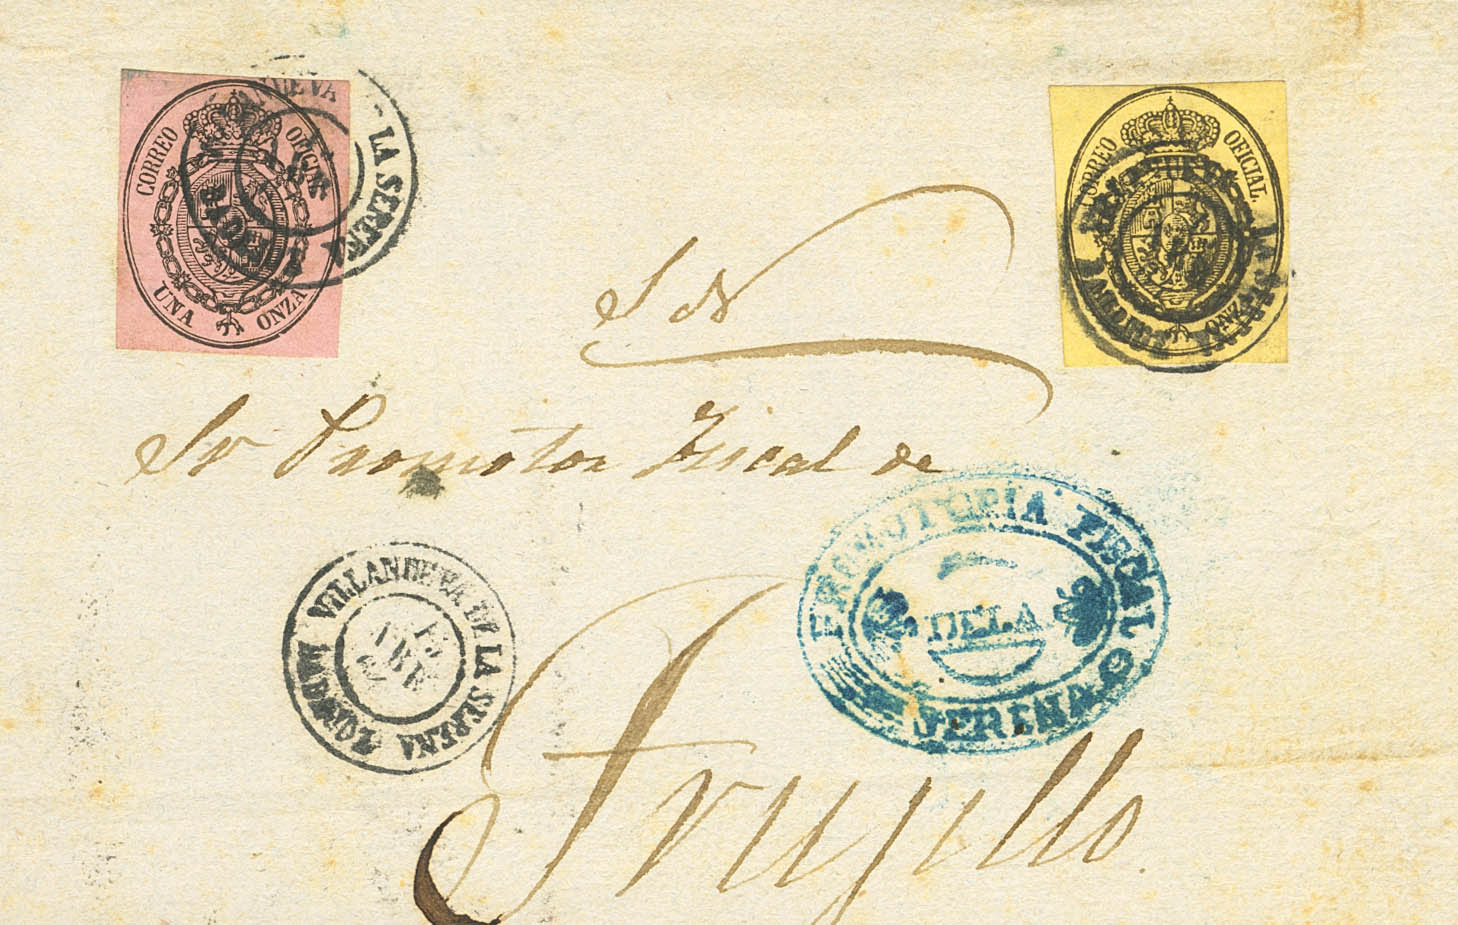 CORREO OFICIAL
UNA ONZA
LA SERENA
BADAJOZ
CORREO OFICIAL
ONZA
S N
Sr Promotor Fiscal de
Trujillo
VILLANUEVA DE LA SERENA
BADAJOZ
PROMOTORIA FISCAL
DE LA
SERENA